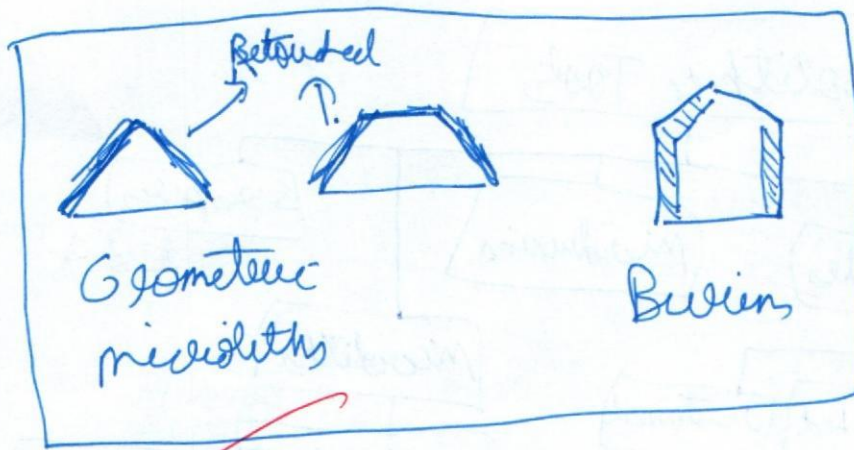 Retouched
Geometric
microliths
Burins